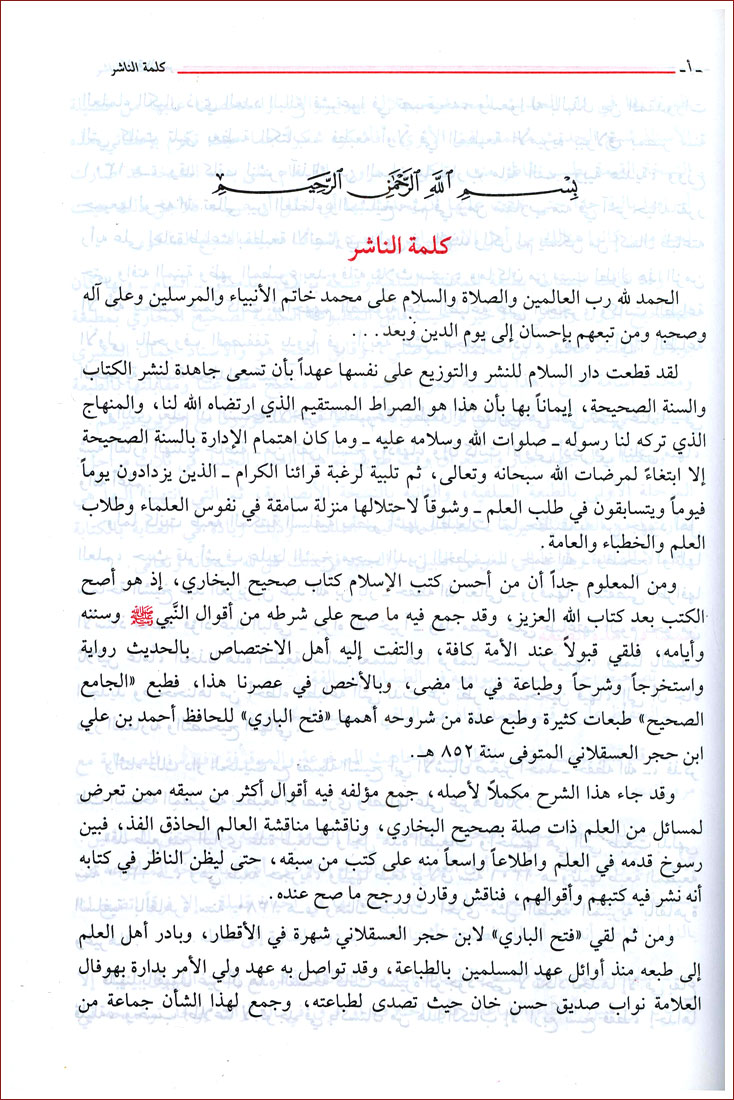 ـ أ ـ
كلمة الناشر
بِسْمِ اللَّهِ الرَّحْمَنِ الرَّحِيمِ
كلمة الناشر
الحمد لله رب العالمين والصلاة والسلام على محمد خاتم الأنبياء والمرسلين وعلى آله
وصحبه ومن تبعهم بإحسان إلى يوم الدين وبعد . . . .
لقد قطعت دار السلام للنشر والتوزيع على نفسها عهداً بأن تسعى جاهدة لنشر الكتاب
والسنة الصحيحة، إيماناً بها بأن هذا هو الصراط المستقيم الذي ارتضاه الله لنا، والمنهاج
الذي تركه لنا رسوله ـ صلوات الله وسلامه عليه ـ وما كان اهتمام الإدارة بالسنة الصحيحة
إلا ابتغاءً لمرضات الله سبحانه وتعالى، ثم تلبية لرغبة قرائنا الكرام ـ الذين يزدادون يوماً
فيوماً ويتسابقون في طلب العلم ـ وشوقاً لاحتلالها منزلة سامقة في نفوس العلماء وطلاب
العلم والخطباء والعامة.
ومن المعلوم جداً أن من أحسن كتب الإسلام كتاب صحيح البخاري، إذ هو أصح
الكتب بعد كتاب الله العزيز، وقد جمع فيه ما صح على شرطه من أقوال النَّبي ﷺ وسننه
وأيامه، فلقي قبولاً عند الأمة كافة، والتفت إليه أهل الاختصاص بالحديث رواية
واستخرجاً وشرحاً وطباعة في ما مضى، وبالأخص في عصرنا هذا، فطبع «الجامع
الصحيح» طبعات كثيرة وطبع عدة من شروحه أهمها «فتح الباري» للحافظ أحمد بن علي
ابن حجر العسقلاني المتوفى سنة ٨٥٢ هـ.
وقد جاء هذا الشرح مكملاً لأصله، جمع مؤلفه فيه أقوال أكثر من سبقه ممن تعرض
لمسائل من العلم ذات صلة بصحيح البخاري، وناقشها مناقشة العالم الحاذق الفذ، فبين
رسوخ قدمه في العلم واطلاعاً واسعاً منه على كتب من سبقه، حتى ليظن الناظر في كتابه
أنه نشر فيه كتبهم وأقوالهم، فناقش وقارن ورجح ما صح عنده.
ومن ثم لقي «فتح الباري» لابن حجر العسقلاني شهرة في الأقطار، وبادر أهل العلم
إلى طبعه منذ أوائل عهد المسلمين بالطباعة، وقد تواصل به عهد ولي الأمر بدارة بهوفال
العلامة نواب صديق حسن خان حيث تصدى لطباعته، وجمع لهذا الشأن جماعة من